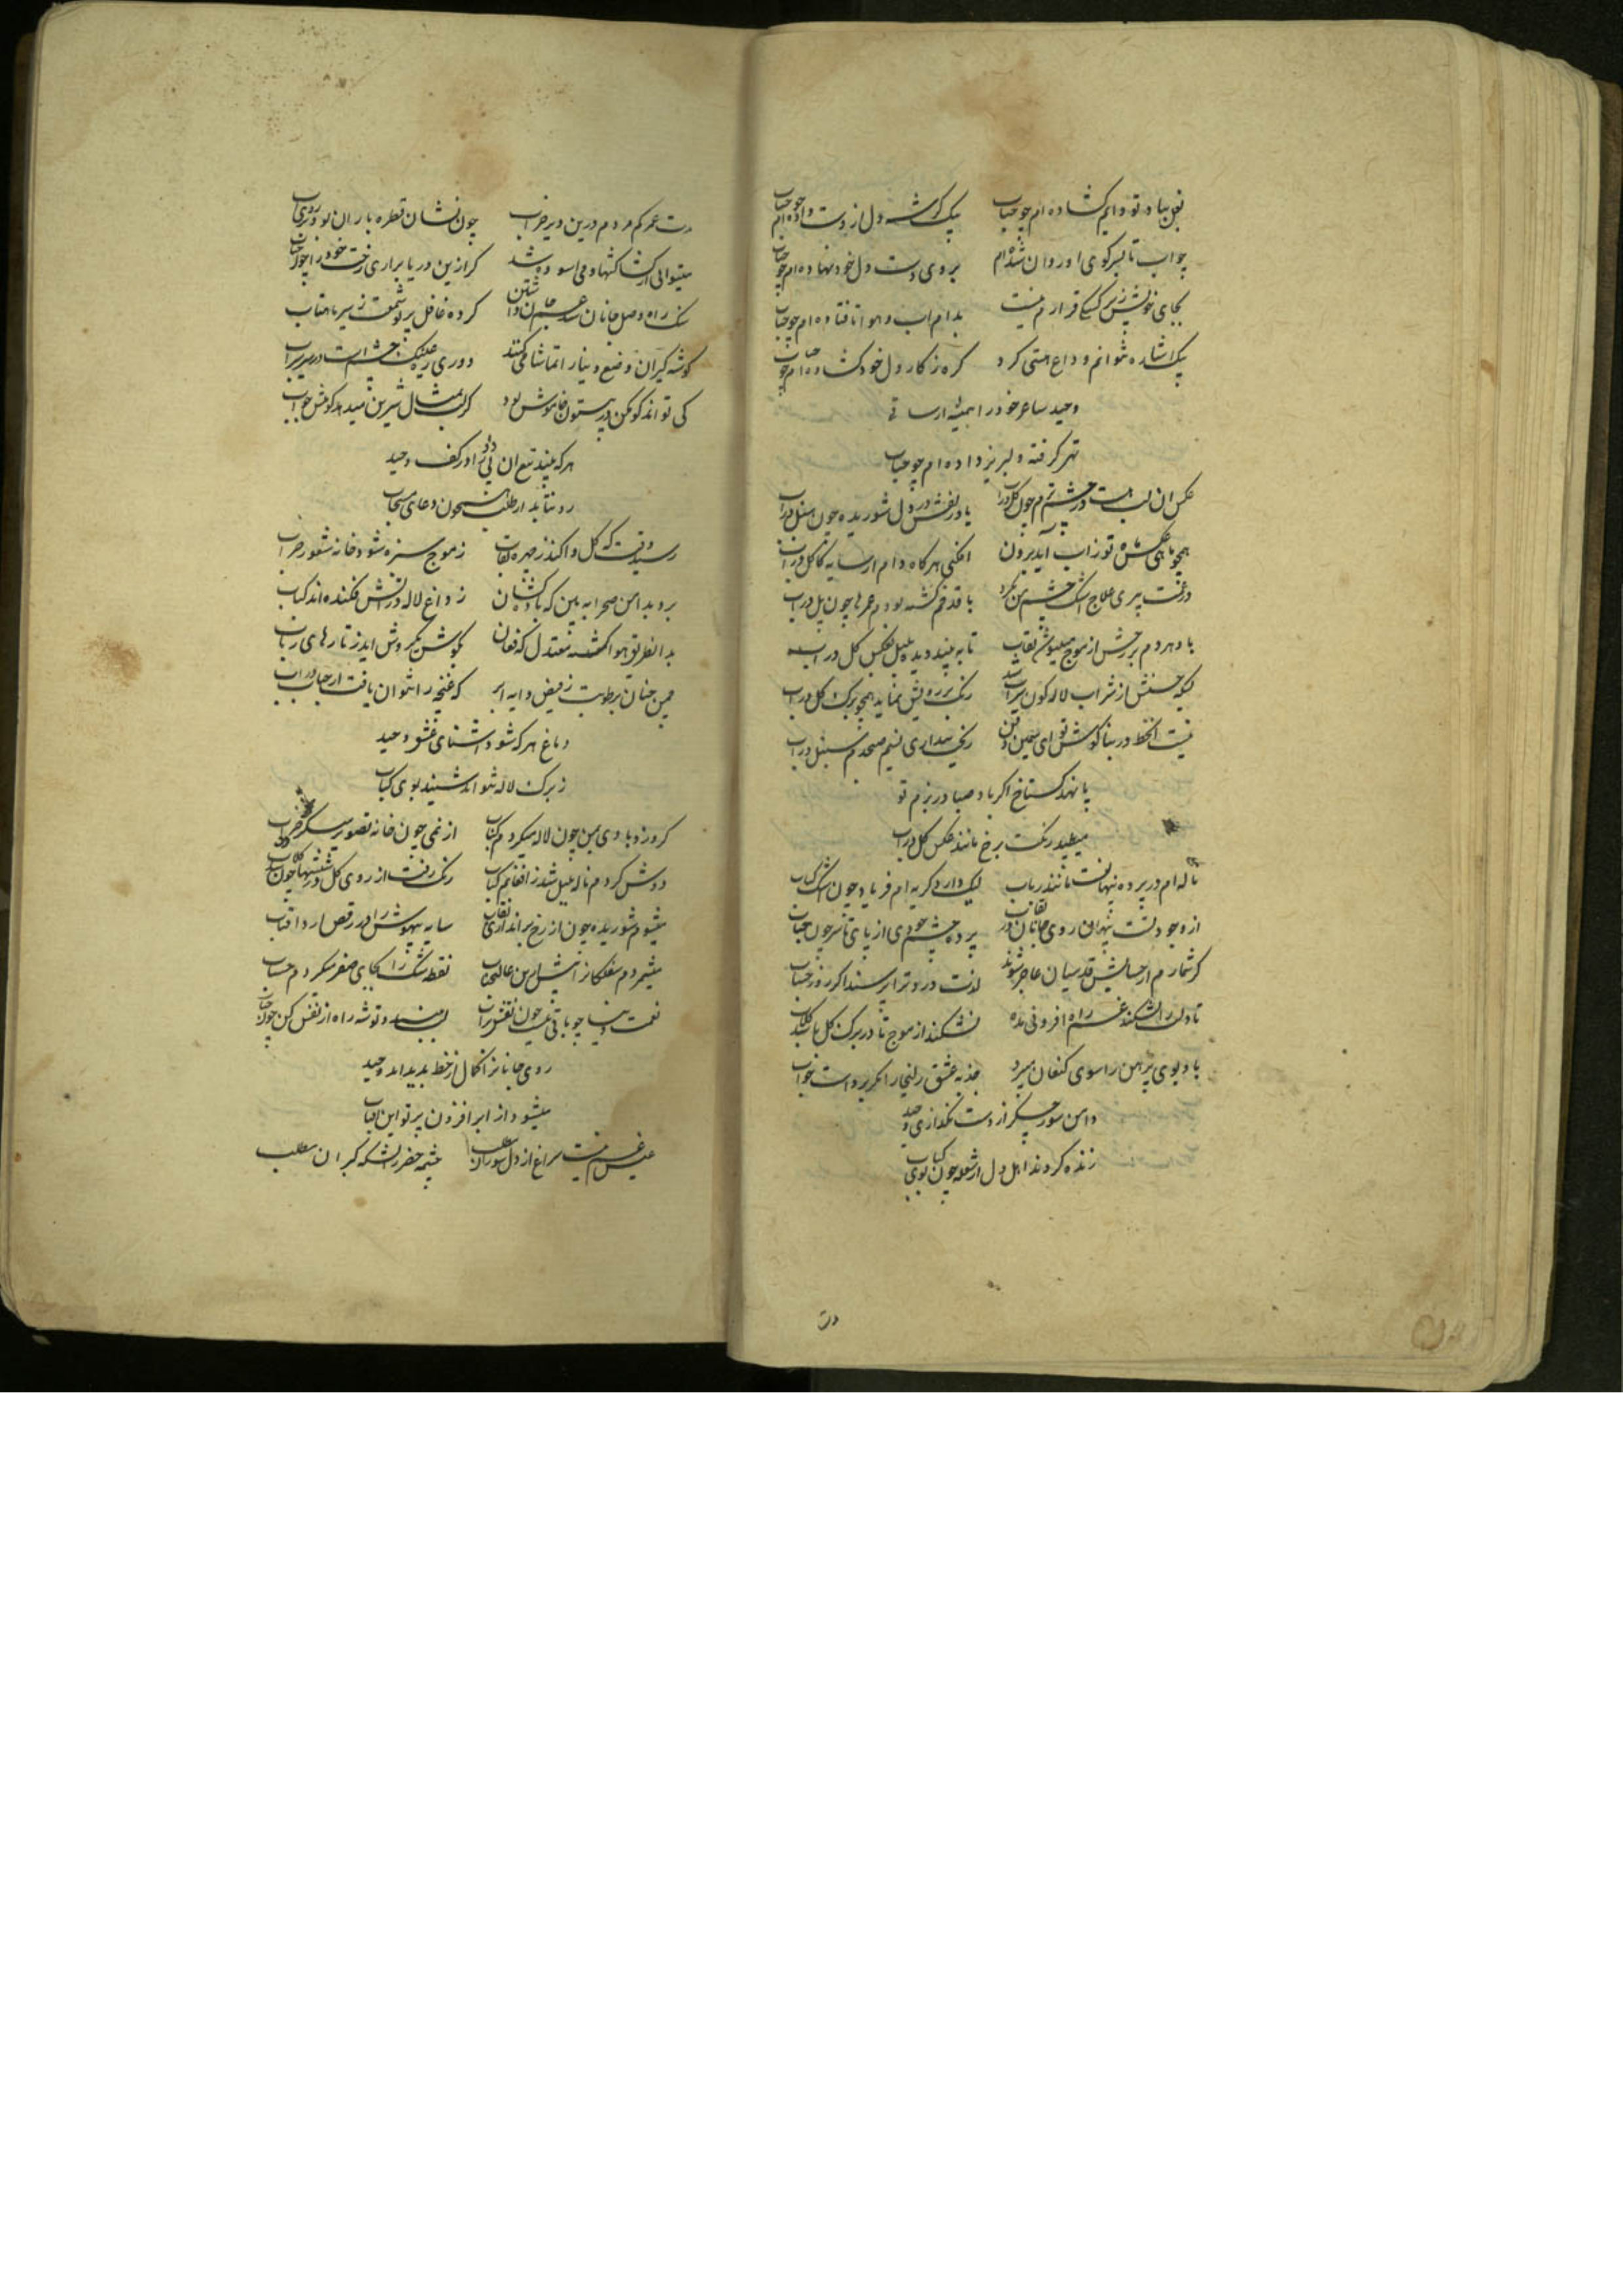 بغل بیاد تو دایم کشاده ام چو حباب بیک کرشمه دل از دست داده ام چو حباب
چو اب تا بسر کوی او روان شده ام بروی دست دل خود نهاده ام چو حباب
بجای خویش ز بس یکنفس قرارم نیست بدام اب و هوا تا فتاده ام چو حباب
بیک اشاره توانم وداع هستی کرد کره ز کار دل خود کشاده ام چو حباب
وحید ساغر خود را همیشه از ساقی
تهی کرفته و لبریز داده ام چو حباب
عکس ان لب هست در چشم ترم چون کل در اب یاد زلفش در دل شوریده چون سنبل در اب
همچو ماهی عکس مه تو ز اب آید برون افکنی هر کاه دام از سایه کاکل در اب
در غمت پیری علاج اشک چشم من نکرد با قد خم کشته بودم عمرها چون پل در اب
باد هر دم بر رخش از موج میپوشد نقاب تا نه بیند دیده بلبل عکس کل در اب
بسکه حسنش از شراب لاله کون سیراب شد رنک بر رویش نماید همچو برک کل در اب
نیست ان خط در بناکوش تو ای سیمین ذقن ریخت پنداری نسیم صبحدم سنبل در اب
پا نهد کستاخ اکر باد صبا در بزم تو
میطپد رنکت برخ مانند عکس کل در اب
ناله ام در پرده پنهانست مانند رباب لیک دارد کریه ام فریاد چون اشک کباب
از وجود تست پنهان روی جانان در نقاب پرده چشم خودی از پای تا سر چون حباب
کر شمارم از حسابش قدسیان عاجز شوند لذت درد ترا پرسند اکر روز حساب
تا دلت را نشکند غم راه افزونی مده نشکند از موج تا در برک کل باشد کلاب
باد بوی پیرهن را سوی کنعان میبرد جذبه عشق زلیخا را مکر بردست خواب
دامن سوز جکر از دست نکذاری وحید
زنده کردند اهل دل از شعله چون بوی کباب
مدت
مدت عمر کم مردم درین دیر خراب چون نشان قطره باران بود در روی اب
میتوانی از کشاکشها دمی اسوده شد کر ازین دریا براری رخت خود را چون حباب
سنک راه وصل جانان شد غم جان داشتن کرده غافل پرتو شمعت ز سیر ماهتاب
کوشه کیران وضع دنیا را تماشا میکنند دوری ره عینک چشم است در سیر سراب
کی تواند کوهکن در بیستون خاموش بود کر لب تمثال شیرین میدهد کوشش جواب
هر که بیند تیغ ان بی داد را در کف وحید
رو نتابد از طلب همچون دعای مستجاب
رسید وقت که کل واکند ز چهره نقاب ز موج سبزه شود خانه شعور خراب
برو بدامن صحرا به بین که باده کشان ز داغ لاله در اتش فکنده اند کباب
بدانطریق هوا کشته معتدل که فغان بکوش نکهت کروش اید ز تارهای رباب
چمن چنان برطوبت ز فیض دایه ابر که غنچه را نتوان یافت از حباب در اب
دماغ هر که شود اشنای عشق وحید
ز برک لاله تواند شنید بوی کباب
کر وزد بادی بمن چون لاله میکردم کباب از نمی چون خانه تصویر میکردم خراب
دوش کردم ناله بلبل شد ز افغانم کباب رنک رفت از روی کل در شیشها چون شد کلاب
میشوم شوریده چون از رخ براندازی نقاب سایه بیهوش را در رقص ارد افتاب
نقطه شک را بجای صفر میکردم حساب
نعمت دنیا چو باقی نیست چون نقش بر اب لب مبند و توشه راه از نفس کن چون حباب
روی جانانرا کمال از خط پدید امد وحید
میشود از ابر افزون پرتو این افتاب
عیش غم نیست سراغ از دل سوزان مطلب چشمه خضر ز اتشکه کبران مطلب